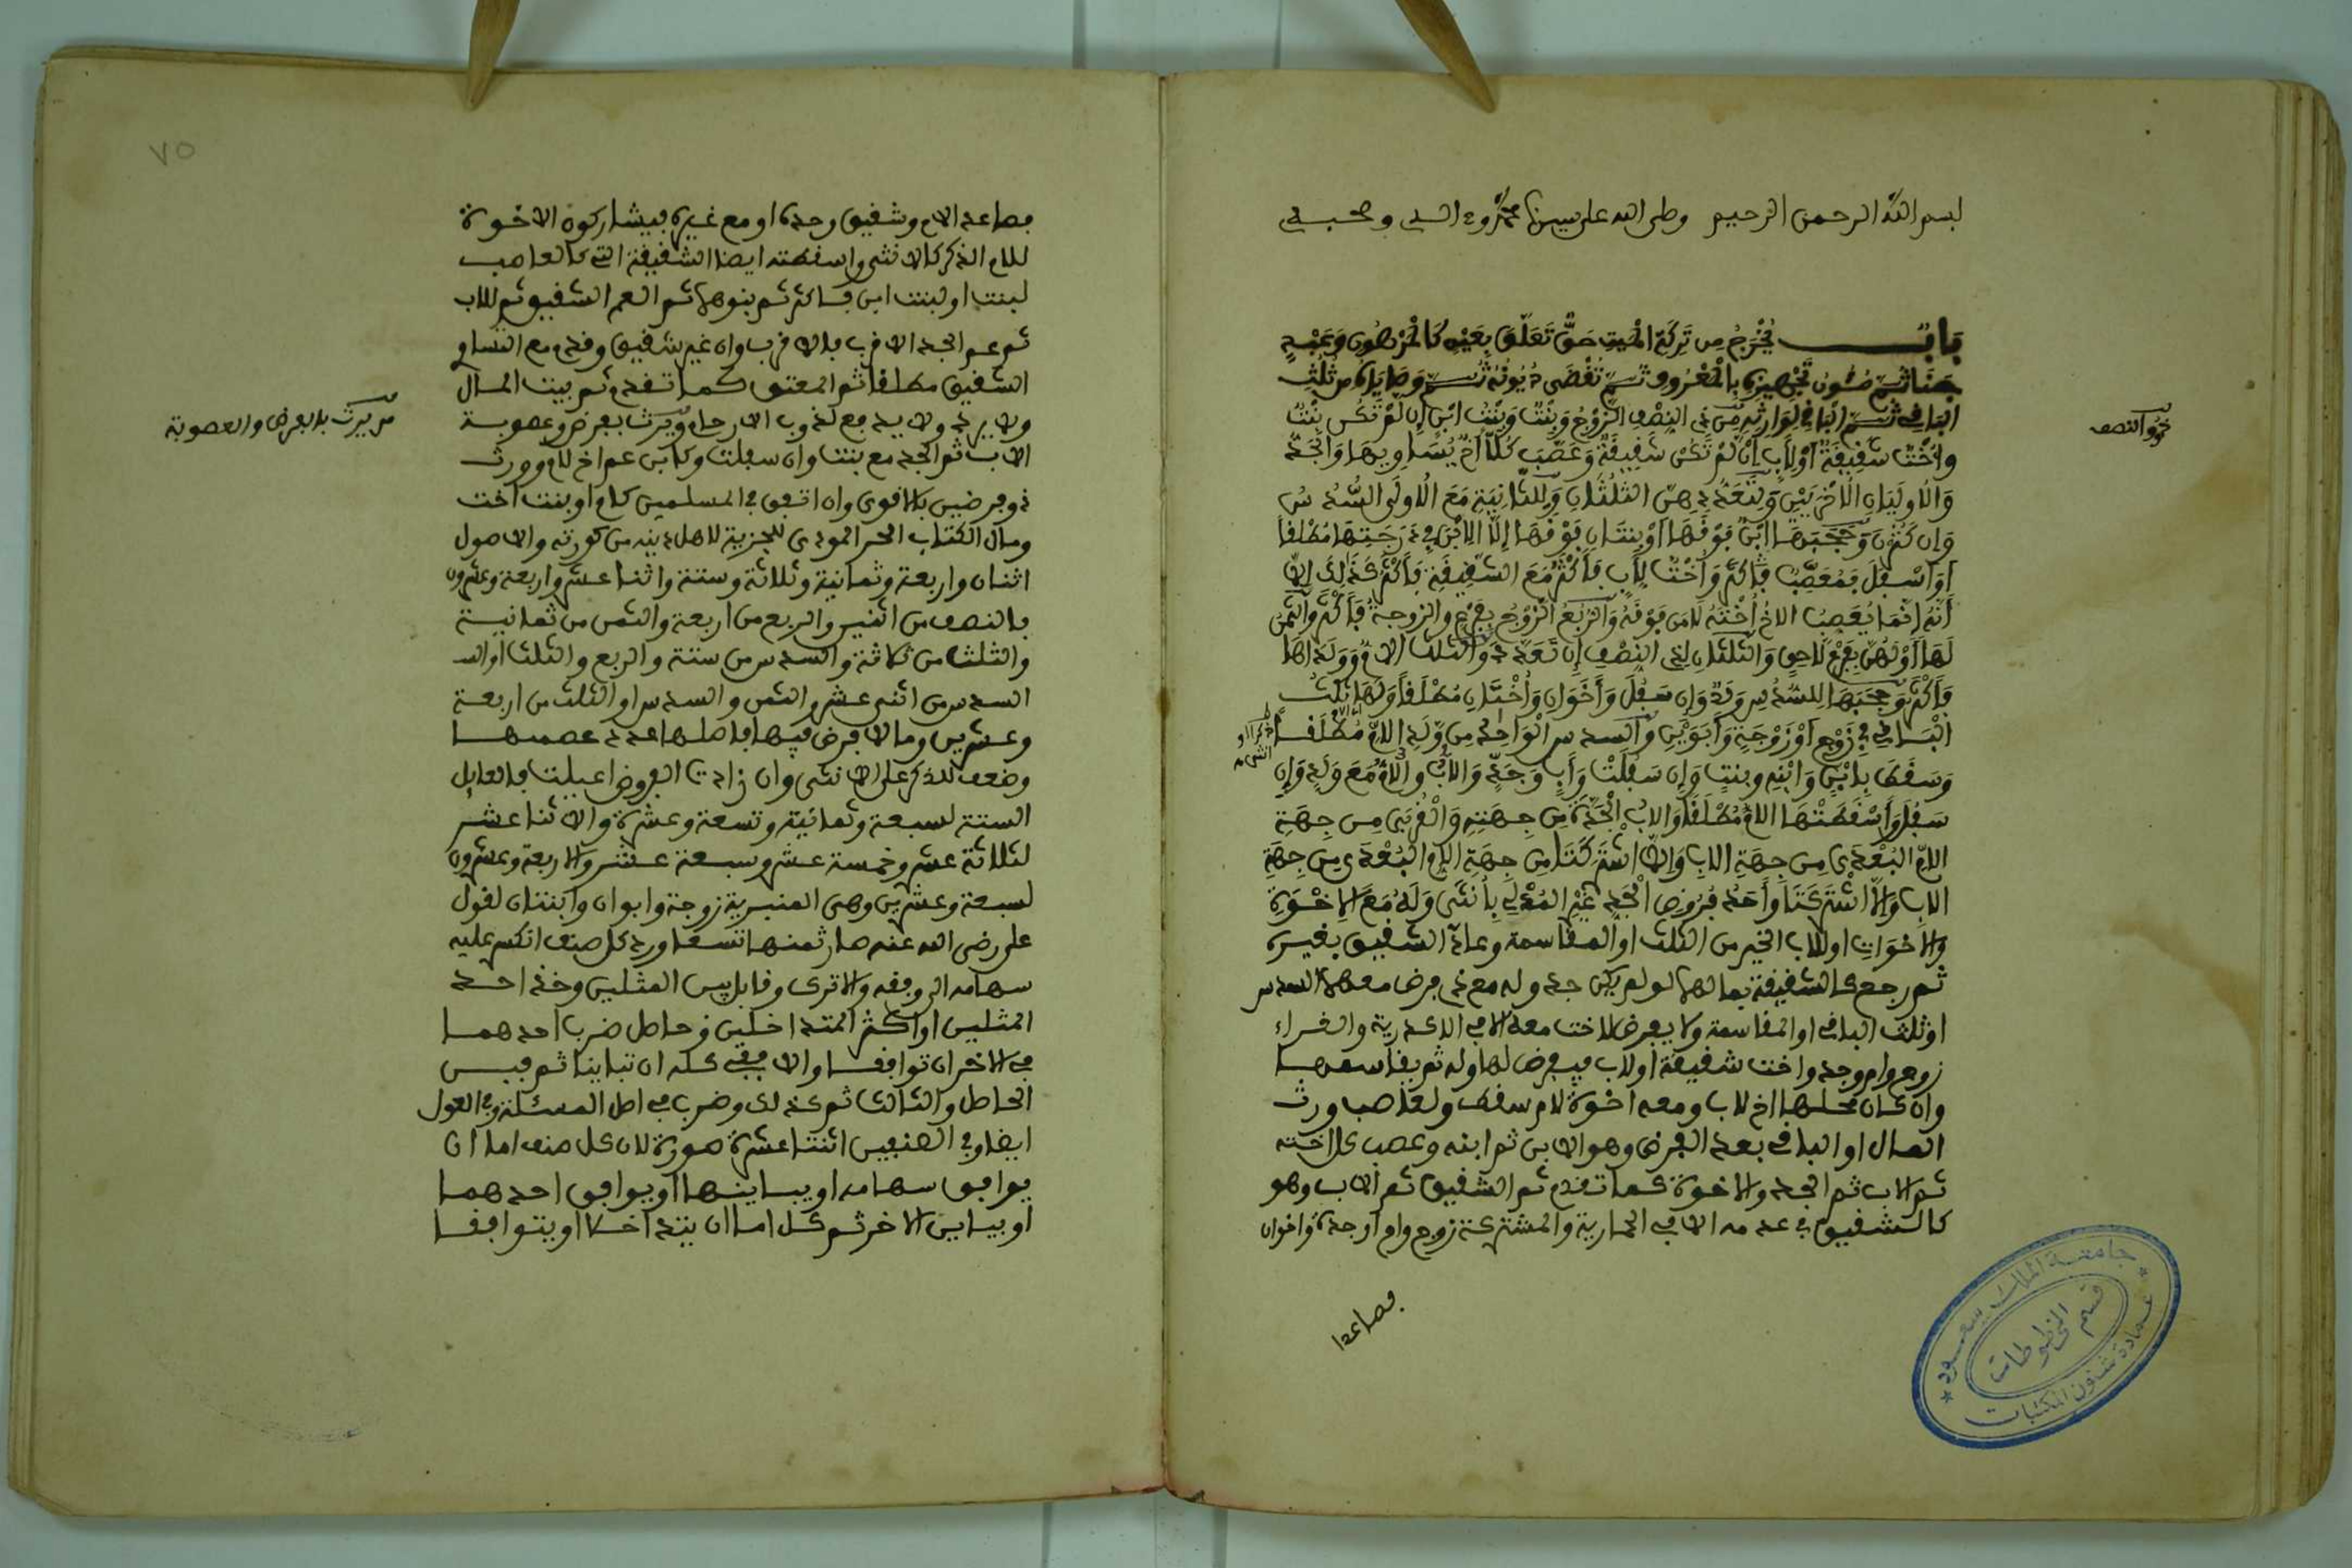 بسم الله الرحمن الرحيم وصلى الله على سيدنا محمد وءاله وصحبه
بَابٌ يُخْرَجُ مِن تَرِكَةِ الْمَيِّتِ حَقٌّ تَعَلَّقَ بِعَيْنٍ كَالْمَرْهُونِ وَعَبْدٍ
جَنَا ثُمَّ مُئُونُ تَجْهِيزِهِ بِالْمَعْرُوفِ ثُمَّ تُقْضَى دُيُونُهُ ثُمَّ وَصَايَاهُ مِن ثُلُثِ
البَاقِي ثُمَّ البَاقِي لِوَارِثِهِ مِن ذِي النِّصْفِ الزَّوْجُ وَبِنْتٌ وَبِنْتُ ابْنٍ إِن لَّمْ تَكُن بِنْتٌ
ذوو النصف
وَأُخْتٌ شَقِيقَةٌ أَوْ لِأَبٍ إِن لَّمْ تَكُن شَقِيقَةٌ وَعَصَّبَ كُلًّا أَخٌ يُسَاوِيهَا وَالْجَدُّ
وَالْأُولَيَانِ الْأُخْرَيَيْنِ وَلِتَعَدُّدِهِنَّ الثُّلُثَانِ وَلِلثَّانِيَةِ مَعَ الْأُولَى السُّدُسُ
وَإِن كَثُرْنَ وَحَجَبَهَا ابْنٌ فَوْقَهَا أَوْ بِنْتَانِ فَوْقَهَا إِلَّا الِابْنَ فِي دَرَجَتِهَا مُطْلَقًا
أَوْ أَسْفَلَ فَمُعَصِّبٌ فَأَكْثَرُ وَأُخْتٌ لِأَبٍ فَأَكْثَرُ مَعَ الشَّقِيقَةِ فَأَكْثَرُ كَذَلِكَ إِلَّا
أَنَّهُ إِنَّمَا يُعَصِّبُ الأَخُ أُخْتَهُ لَا مَن فَوْقَهُ وَالرُّبُعُ الزَّوْجُ بِفَرْعٍ والزوجةُ فَأَكْثَرُ والثمنُ
لَهَا أَوْ لَهُنَّ بِفَرْعٍ لَاحِقٍ وَالثُّلُثَانِ لِذِي النِّصْفِ إِن تَعَدَّدَ والثلث الأم وَوَلَدَاهَا
فَأَكْثَرُ وَحَجَبَهَا لِلسُّدُسِ وَلَدٌ وَإِن سَفَلَ وَأَخَوَانِ وَأُخْتَانِ مُطْلَقًا وَلَهَا ثُلُثُ
الْبَاقِي فِي زَوْجٍ أَوْ زَوْجَةٍ وَأَبَوَيْنِ وَالسدس الْوَاحِدِ مِن وَلَدِ الأُمِّ مُطْلَقًا
ذكرا او انثى
وَسَقَطَ بِابْنٍ وَابْنِهِ وبنتٍ وَإِن سَفَلَتْ وَأَبٍ وَجَدٍّ وَالأَبُ وَالأُمُّ مَعَ وَلَدٍ وَإِن
سَفَلَ وَأَسْقَطَتْهَا الأُمُّ مُطْلَقًا وَالأَبُ الْجَدَّةَ مِن جِهَتِهِ وَالْقُرْبَى مِن جِهَةِ
الأُمِّ البُعْدَى مِن جِهَةِ الأَبِ وَإِلَّا اشْتَرَكَتَا مِن جِهَةِ الأُمِّ الْبُعْدَى مِن جِهَةِ
الأَبِ وَإِلَّا اشْتَرَكَتَا وَأَحَدُ فُرُوضِ الْجَدِّ غَيْرِ الْمُدْلِي بِأُنثَى وَلَهُ مَعَ الإِخْوَةِ
والأَخَوَاتِ او للاب الخير من الثلث او المقاسمة وعادَّ الشقيق بغيره
ثم رجع كالشقيقة بمالها لو لم يكن جد وله مع ذي فرض معهما السدس
او ثلث الباقي او المقاسمة ولا يفرض للاخت معه الا في الاكدرية والغراء
زوج وام وجد واخت شقيقة او لاب فيفرض لها وله ثم يقاسمها
وان كان محلها اخ لاب ومعه اخوة لام سقط ولعاصب ورث
المال او الباقي بعد الفرض وهو الابن ثم ابنه وعصب كل اخته
ثم الاب ثم الجد والاخوة كما تقدم ثم الشقيق ثم الاب وهو
كالشقيق في عدمه الا في الحمارية والمشتركة زوج وام او جدة واخوان
فصاعدا
جامعة الملك سعود
قسم المخطوطات
عمادة شئون المكتبات
٧٥
فصاعدا لام وشقيق وحده او مع غيره فيشاركون الاخوة
للام الذكر كالانثى واسقطته ايضا الشقيقة التي كالعاصب
لبنت او لبنت ابن فاكثر ثم بنوهما ثم العم الشقيق ثم للاب
ثم عم الجد الاقرب فالاقرب وان غير شقيق وقدم مع التساوي
الشقيق مطلقا ثم المعتق كما تقدم ثم بيت المال
ولا يرد ولا يدفع لذوي الارحام ويرث بفرض وعصوبة
من يرث بالفرض والعصوبة
الاب ثم الجد مع بنت وان سفلت وكابن عم اخ لام وورث
ذو فرضين بالاقوى وان اتفق في المسلمين كام او بنت اخت
ومال الكتاب الحر المودي للجزية لاهل دينه من كورته والاصول
اثنان واربعة وثمانية وثلاثة وستة واثنا عشر واربعة وعشرون
فالنصف من اثنين والربع من اربعة والثمن من ثمانية
والثلث من ثلاثة والسدس من ستة والربع والثلث او الس
السدس من اثني عشر والثمن والسدس او الثلث من اربعة
وعشرين وما لا فرض فيها فاصلها عدد عصبتها
وضعف للذكر على الانثى وان زادت الفروض اعيلت فالعايل
الستة لسبعة وثمانية وتسعة وعشرة والاثنا عشر
لثلاثة عشر وخمسة عشر وسبعة عشر والاربعة وعشرون
لسبعة وعشرين وهي المنبرية زوجة وابوان وابنتان لقول
علي رضي الله عنه صار ثمنها تسعا ورد كل صنف انكسر عليه
سهامه الى وفقه والا ترك وقابل بين المثلين وخذ احد
المثلين او اكثر المتداخلين وحاصل ضرب احدهما
في الاخر ان توافقا والا ففي كله ان تباينا ثم فبين
الحاصل والثالث ثم كذلك وضرب في اصل المسئلة وفي العول
ايضا وفي الصنفين اثنتا عشرة صورة لان كل صنف اما ان
يوافق سهامه او يباينها او يوافق احدهما
او يباين الاخر ثم كل اما ان يتداخلا او يتوافقا